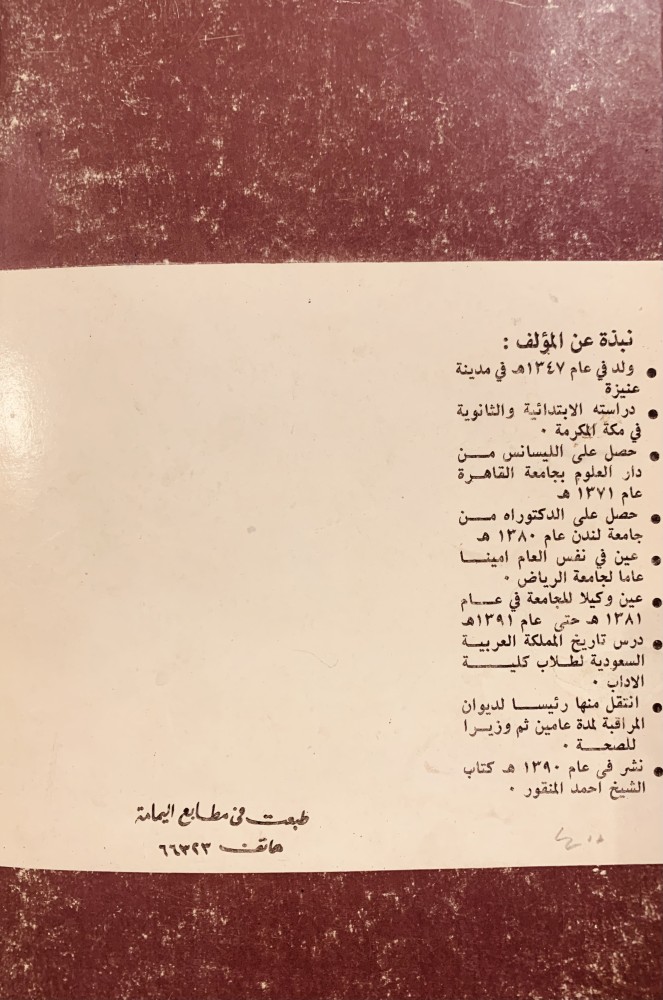 نبذة عن المؤلف :
● ولد في عام ١٣٤٧هـ في مدينة
عنيزة
● دراسته الابتدائية والثانوية
في مكة المكرمة ٠
● حصل على الليسانس من
دار العلوم بجامعة القاهرة
عام ١٣٧١ هـ
● حصل على الدكتوراه من
جامعة لندن عام ١٣٨٠ هـ
● عين في نفس العام امينا
عاما لجامعة الرياض ٠
● عين وكيلا للجامعة في عام
١٣٨١ هـ حتى عام ١٣٩١هـ
● درس تاريخ المملكة العربية
السعودية لطلاب كلية
الاداب ٠
● انتقل منها رئيسا لديوان
المراقبة لمدة عامين ثم وزيرا
للصحة ٠
● نشر في عام ١٣٩٠ هـ كتاب
الشيخ احمد المنقور ٠
طبعت في مطابع اليمامة
هاتف ٦٦٣٢٣